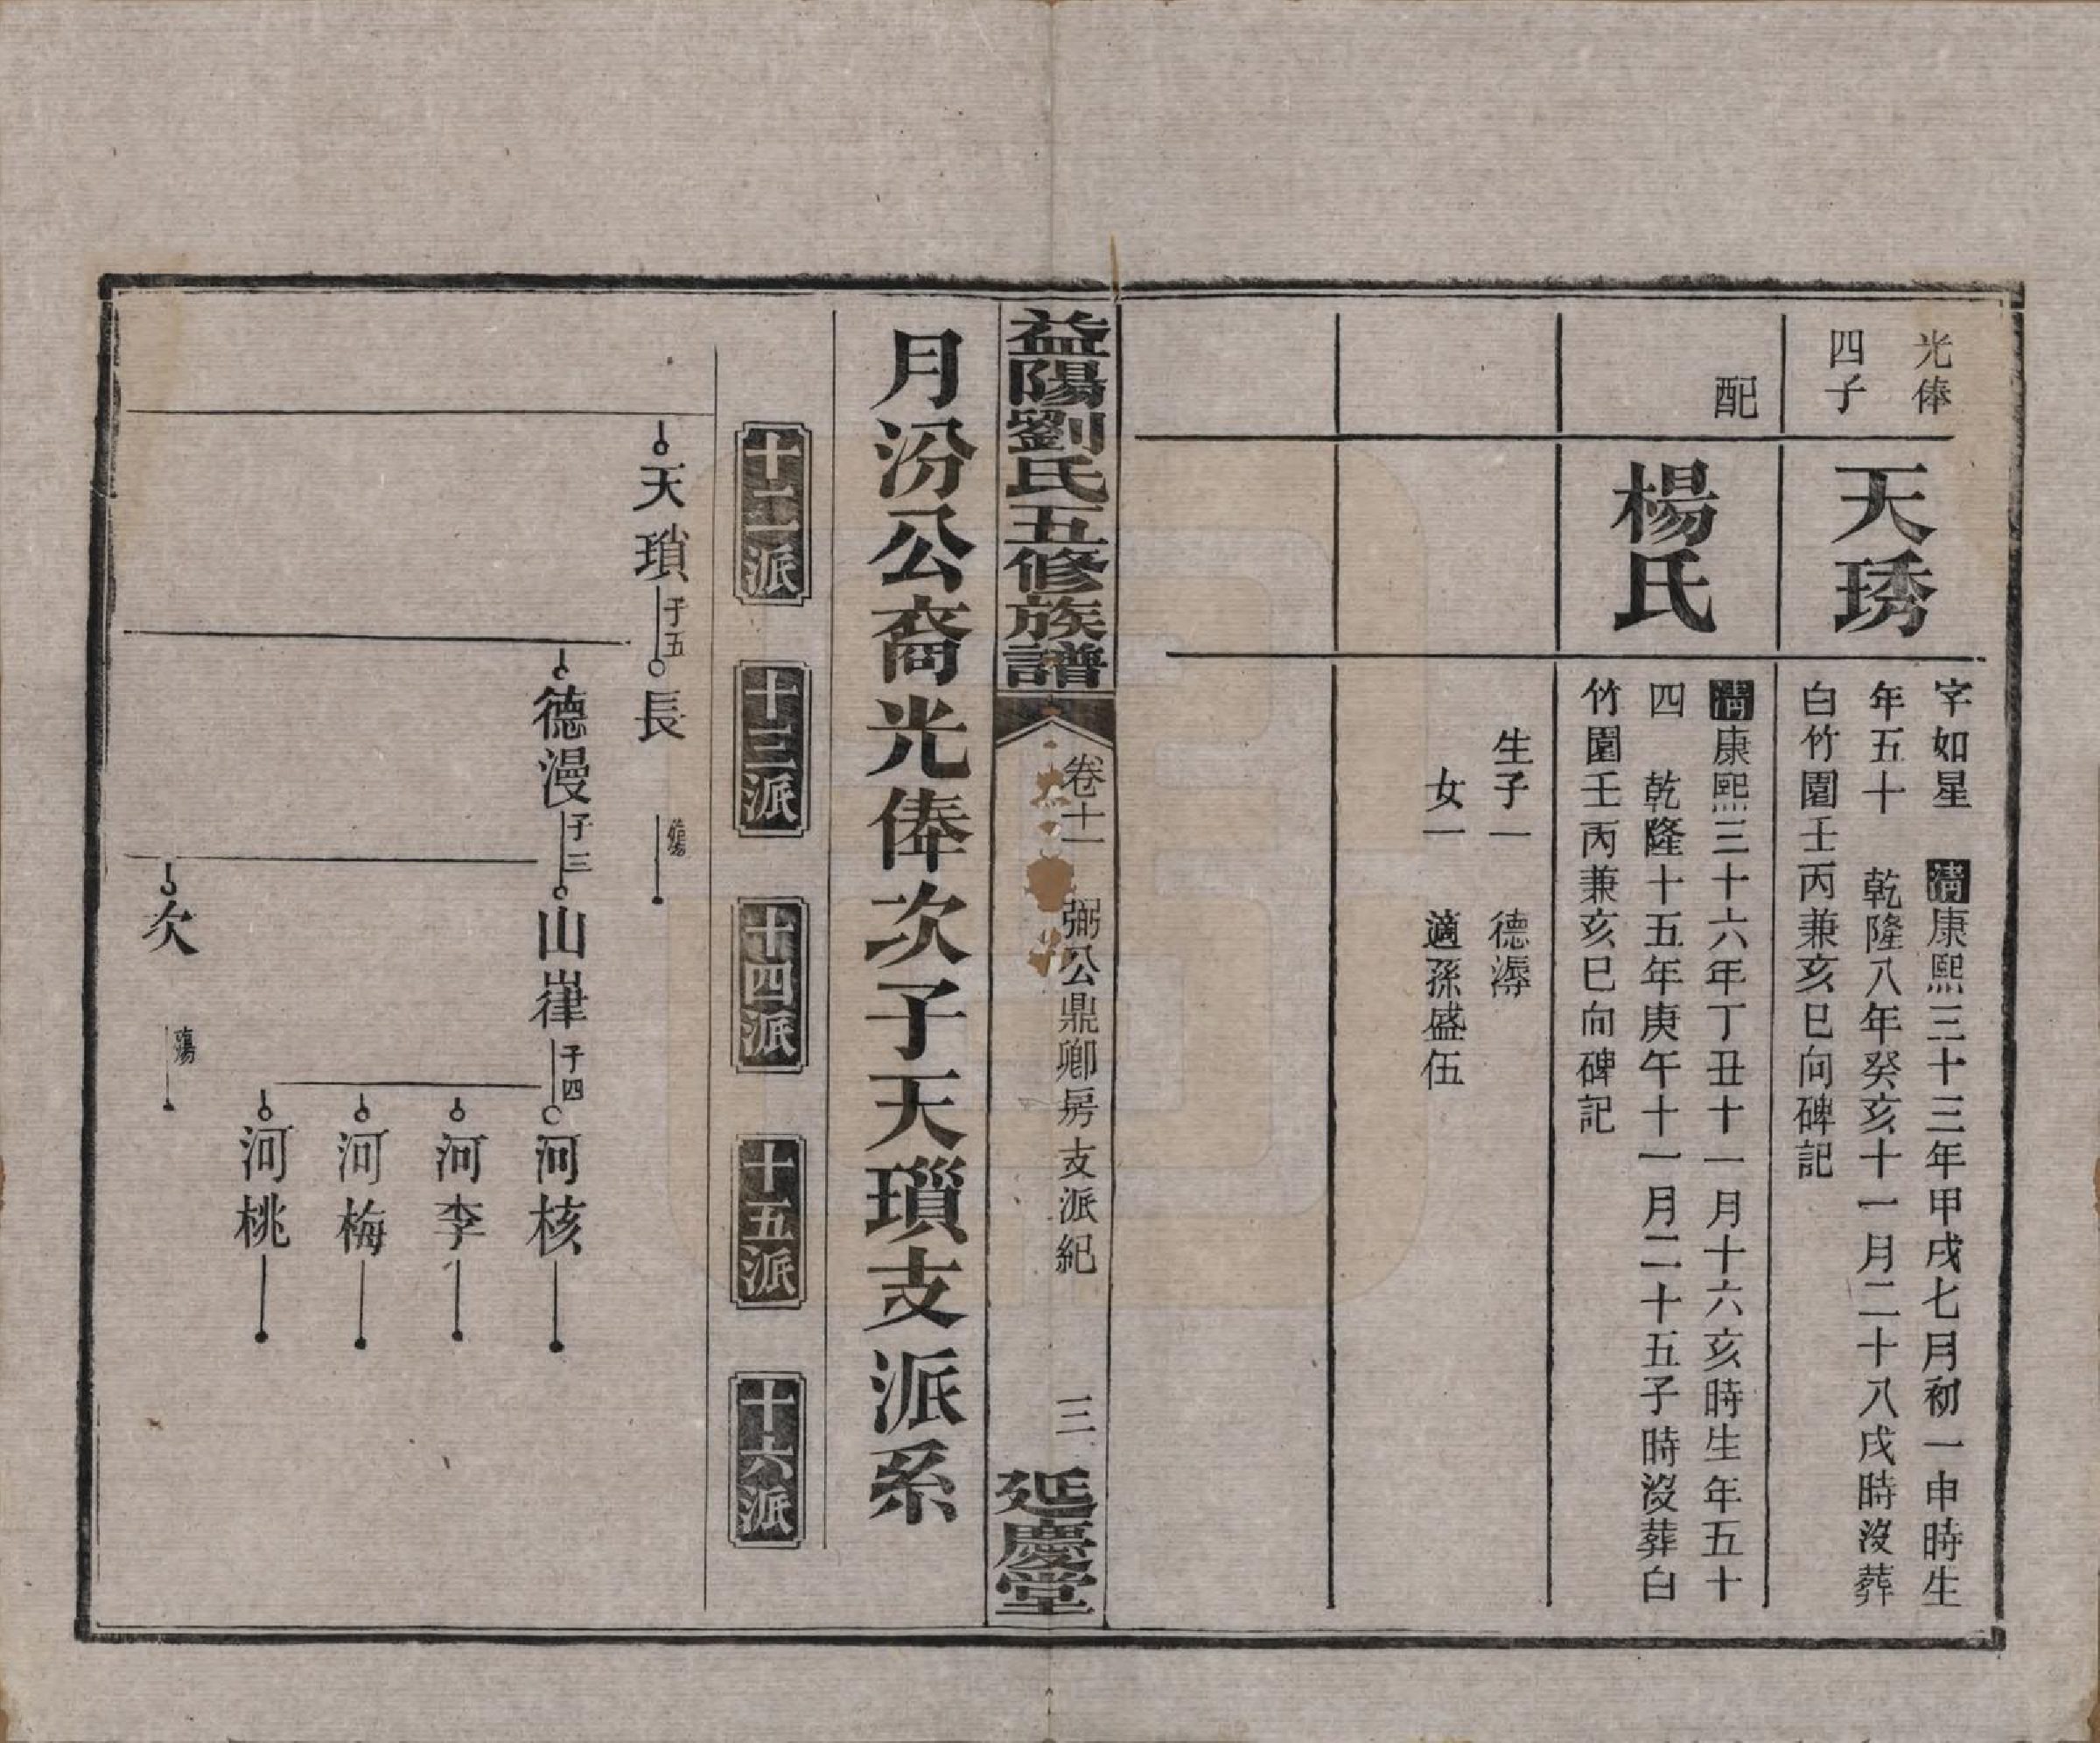 光俸
四子
天琇
字如星　清康熙三十三年甲戌七月初一申時生
年五十　乾隆八年癸亥十一月二十八戌時沒葬
白竹園壬丙兼亥巳向碑記
配
楊氏
清康熙三十六年丁丑十一月十六亥時生年五十
四　乾隆十五年庚午十一月二十五子時沒葬白
竹園壬丙兼亥巳向碑記
生子一　德溽
女一　適孫盛伍
益陽劉氏五修族譜
卷十一　弼公鼎卿房支派紀　三
延慶堂
月汾公裔光俸次子天瑣支派系
十二派　十三派　十四派　十五派　十六派
天瑣　子五　長　殤
德漫　子三　山嵂　子四　河核
河李
河梅
河桃
次　殤